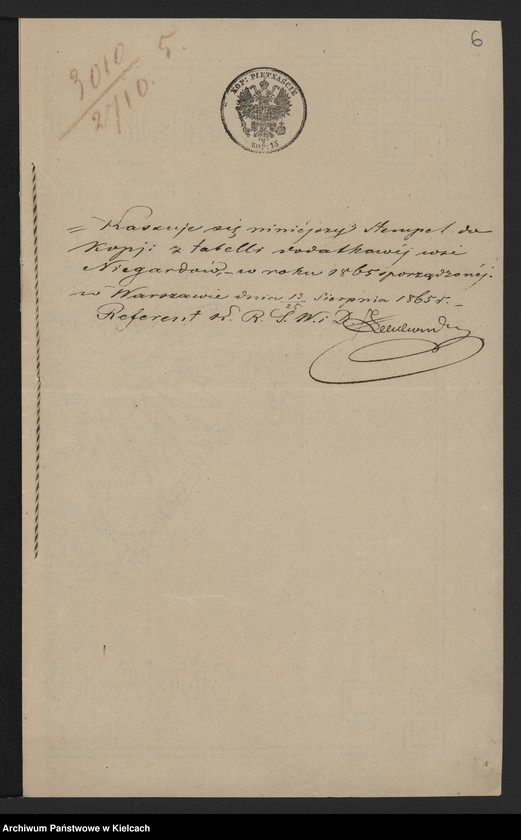 6
3010 5.
2710.
KOP: PIĘTNAŚCIE
KOP: 15
= Kassuje się niniejszy stempel do
Kopji z tabelli dodatkowéj wsi
Niegardów, w roku 1865 sporządzonéj.
w Warszawie dnia 13/25 Sierpnia 1865 r. _
Referent K. R. S. W. i D.
Archiwum Państwowe w Kielcach